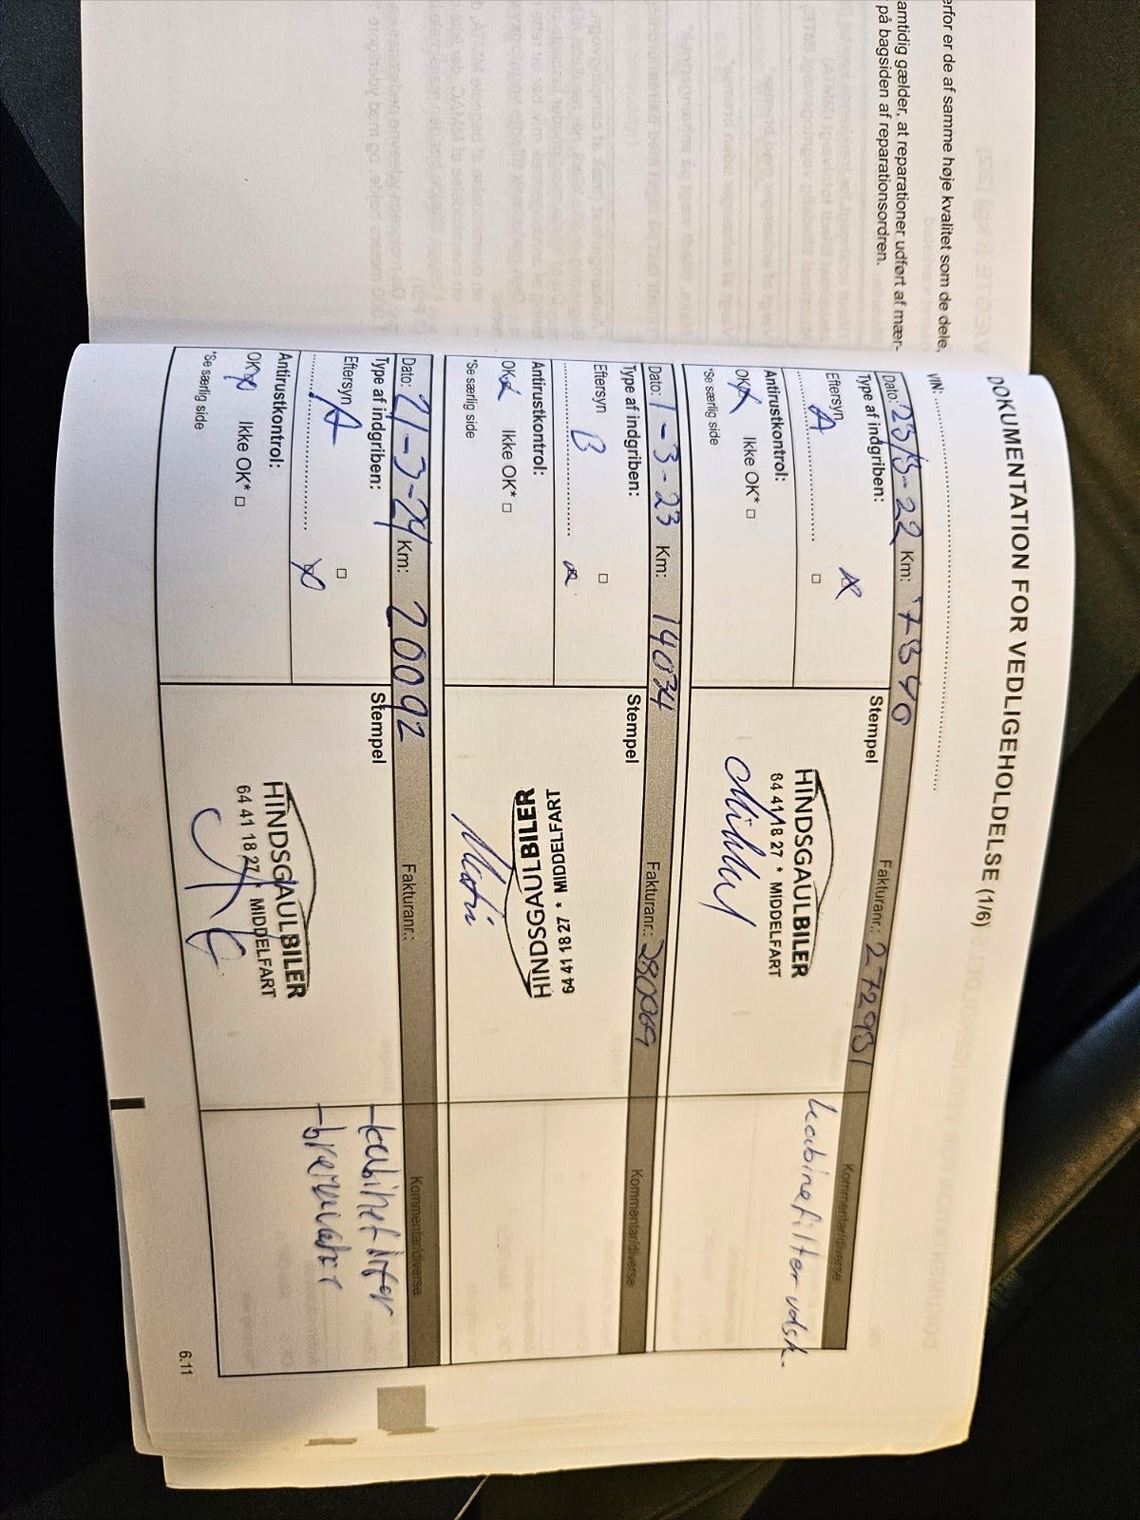 erfor er de af samme høje kvalitet som de dele,
amtidig gælder, at reparationer udført af mær-
på bagsiden af reparationsordren.
DOKUMENTATION FOR VEDLIGEHOLDELSE (1/6)
VIN: ..........................................
Dato: 23/3-22 Km: 7340 Fakturanr.: 272931 Kommentar/diverse
Type af indgriben: Stempel
Eftersyn
A
kabinefilter udsk.
HINDSGAULBILER
64 41 18 27 * MIDDELFART
Antirustkontrol:
OK Ikke OK* □
*Se særlig side
Dato: 1-3-23 Km: 14034 Fakturanr.: 280069 Kommentar/diverse
Type af indgriben: Stempel
Eftersyn
B
64 41 18 27 * MIDDELFART
HINDSGAULBILER
Antirustkontrol:
OK Ikke OK* □
*Se særlig side
Dato: 21-3-24 Km: 20092 Fakturanr.: Kommentar/diverse
Type af indgriben: Stempel
Eftersyn
A
HINDSGAULBILER
64 41 18 27 * MIDDELFART
Antirustkontrol:
OK Ikke OK* □
*Se særlig side
6.11